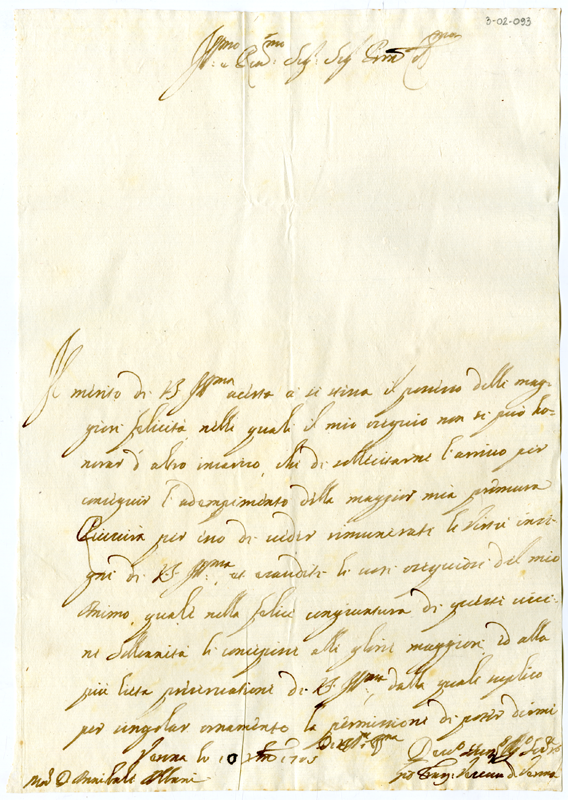 3-02-093
Ill.mo e Sig.r Sig.r
Il merito di V.S. Ill.ma a se stesa il possesso delle mag-
giori felicità, nelle quali il mio ossequio non si può ho-
norar d'altro incarico, che di sollecitarne l'arrivo per
conseguir l'adempimento della maggior mia premura
per di veder rimunerate le virtù insi-
gni di V.S. Ill.ma, et esaudite li voti ossequiosi del mio
Animo, quale nella felice congiuntura di queste vici-
ne Solennità le concepisce alle glorie maggiori, ed alla
più lieta preservatione di V.S. Ill.ma, dalla quale supplico
per singolar ornamento la permissione di poter dirmi
Di V.S. Ill.ma
li 10 Xbre 1705
Mons. D. Annibale Albani